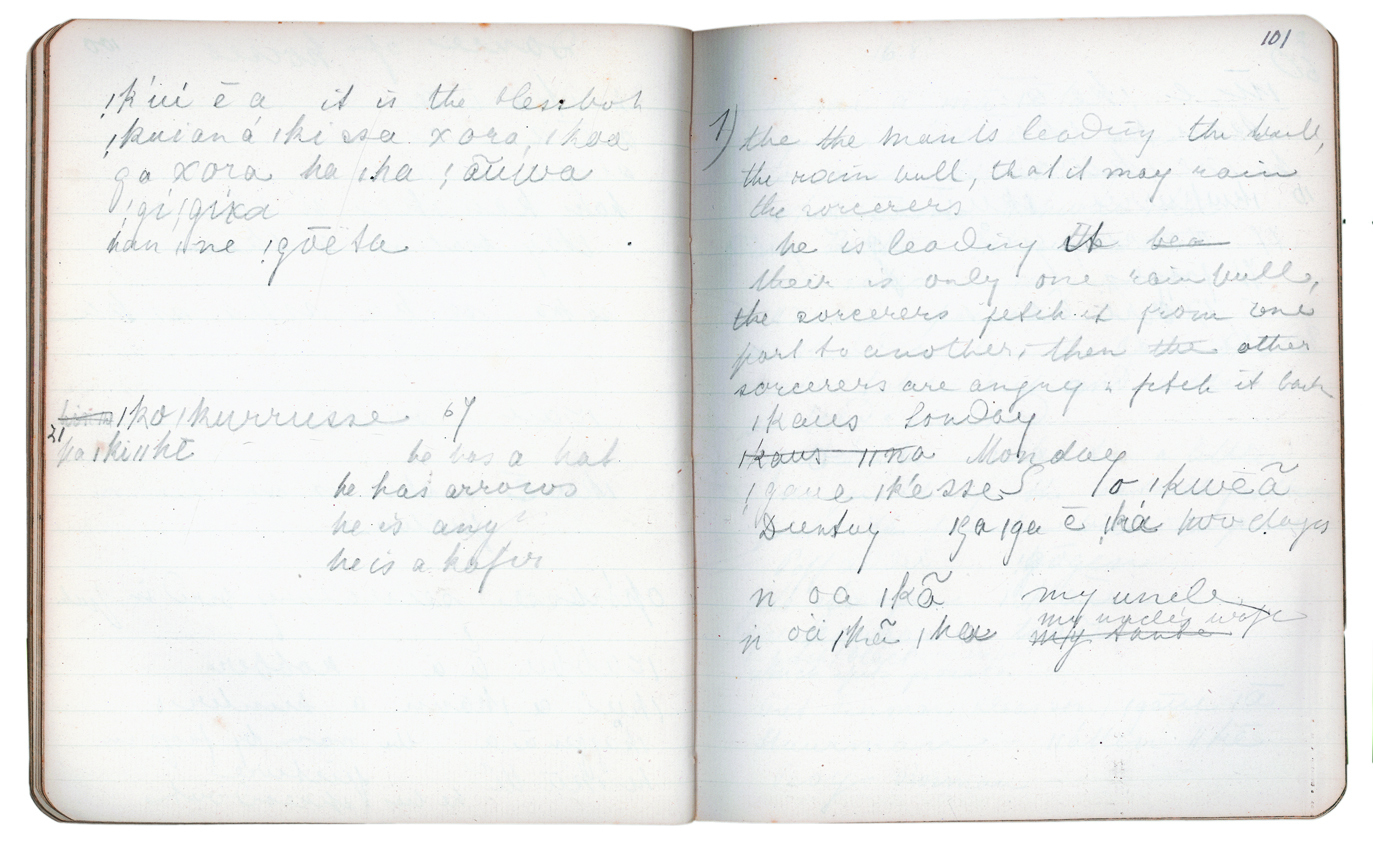 ǃk'úí ē a it is the blessboh
ǃkuianá ǀki ssa xora, ǀkoa
ga xora ha ǀha ǃãuwa
ǃgi ǃgixa
han ǀne ǃgōeta
ǀko ǀkurrusse 67
21
ha ǀki ǁhē he has a hat
he has arrows
he is angy
he is a kafir
101
1) the the man is leading the bull,
the rain bull, that it may rain
the sorcerers
he is leading it
their is only one rain bull,
the sorcerers fetch it from one
part to another, then the other
sorcerers are angry & fetch it back
ǀkaus Sonday
ǀkaus ǁna Monday
ǃgaue ǀk'esse
Duntay ǀga ǀga ē ǃká two days
n oa ǀkã my uncle
my uncle's wife
n oa ǀkã ǀha my tante